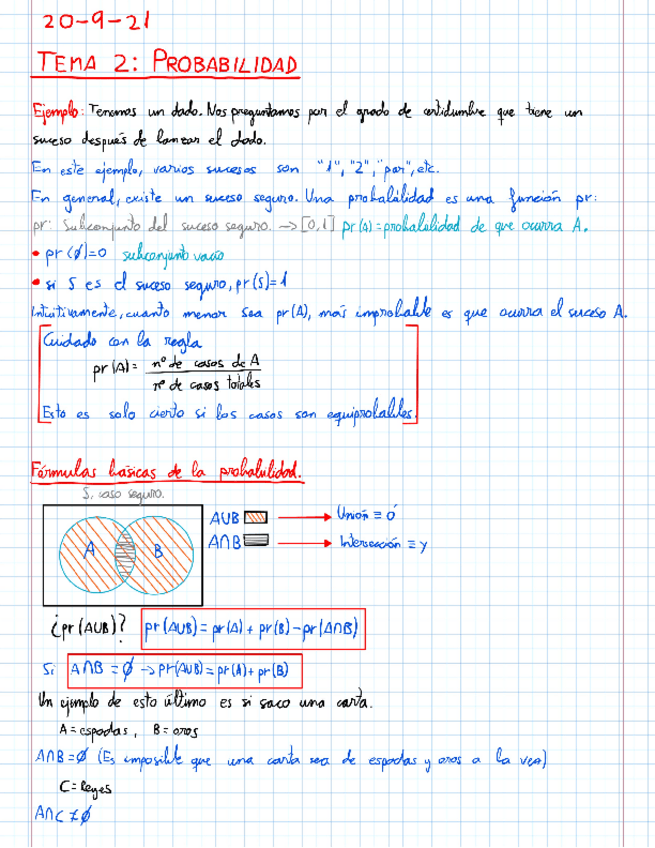 20-9-21
TEMA 2: PROBABILIDAD
Ejemplo: Tenemos un dado. Nos preguntamos por el grado de certidumbre que tiene un
suceso después de lanzar el dado.
En este ejemplo, varios sucesos son "1", "2", "par", etc.
En general, existe un suceso seguro. Una probabilidad es una función pr:
pr: Subconjunto del suceso seguro. -> [0,1] pr(A)=probabilidad de que ocurra A.
• pr(∅)=0 subconjunto vacío
• si S es el suceso seguro, pr(S)=1
Intuitivamente, cuanto menor sea pr(A), más improbable es que ocurra el suceso A.
Cuidado con la regla
pr(A)= nº de casos de A
nº de casos totales
Esto es solo cierto si los casos son equiprobables.
Fórmulas básicas de la probabilidad.
S, caso seguro.
A B
A∪B → Unión ≡ ó
A∩B → Intersección ≡ y
¿pr(A∪B)? pr(A∪B)=pr(A)+pr(B)-pr(A∩B)
Si A∩B=∅ → pr(A∪B)=pr(A)+pr(B)
Un ejemplo de esto último es si saco una carta.
A=espadas, B=oros
A∩B=∅ (Es imposible que una carta sea de espadas y oros a la vez)
C=Reyes
A∩C≠∅